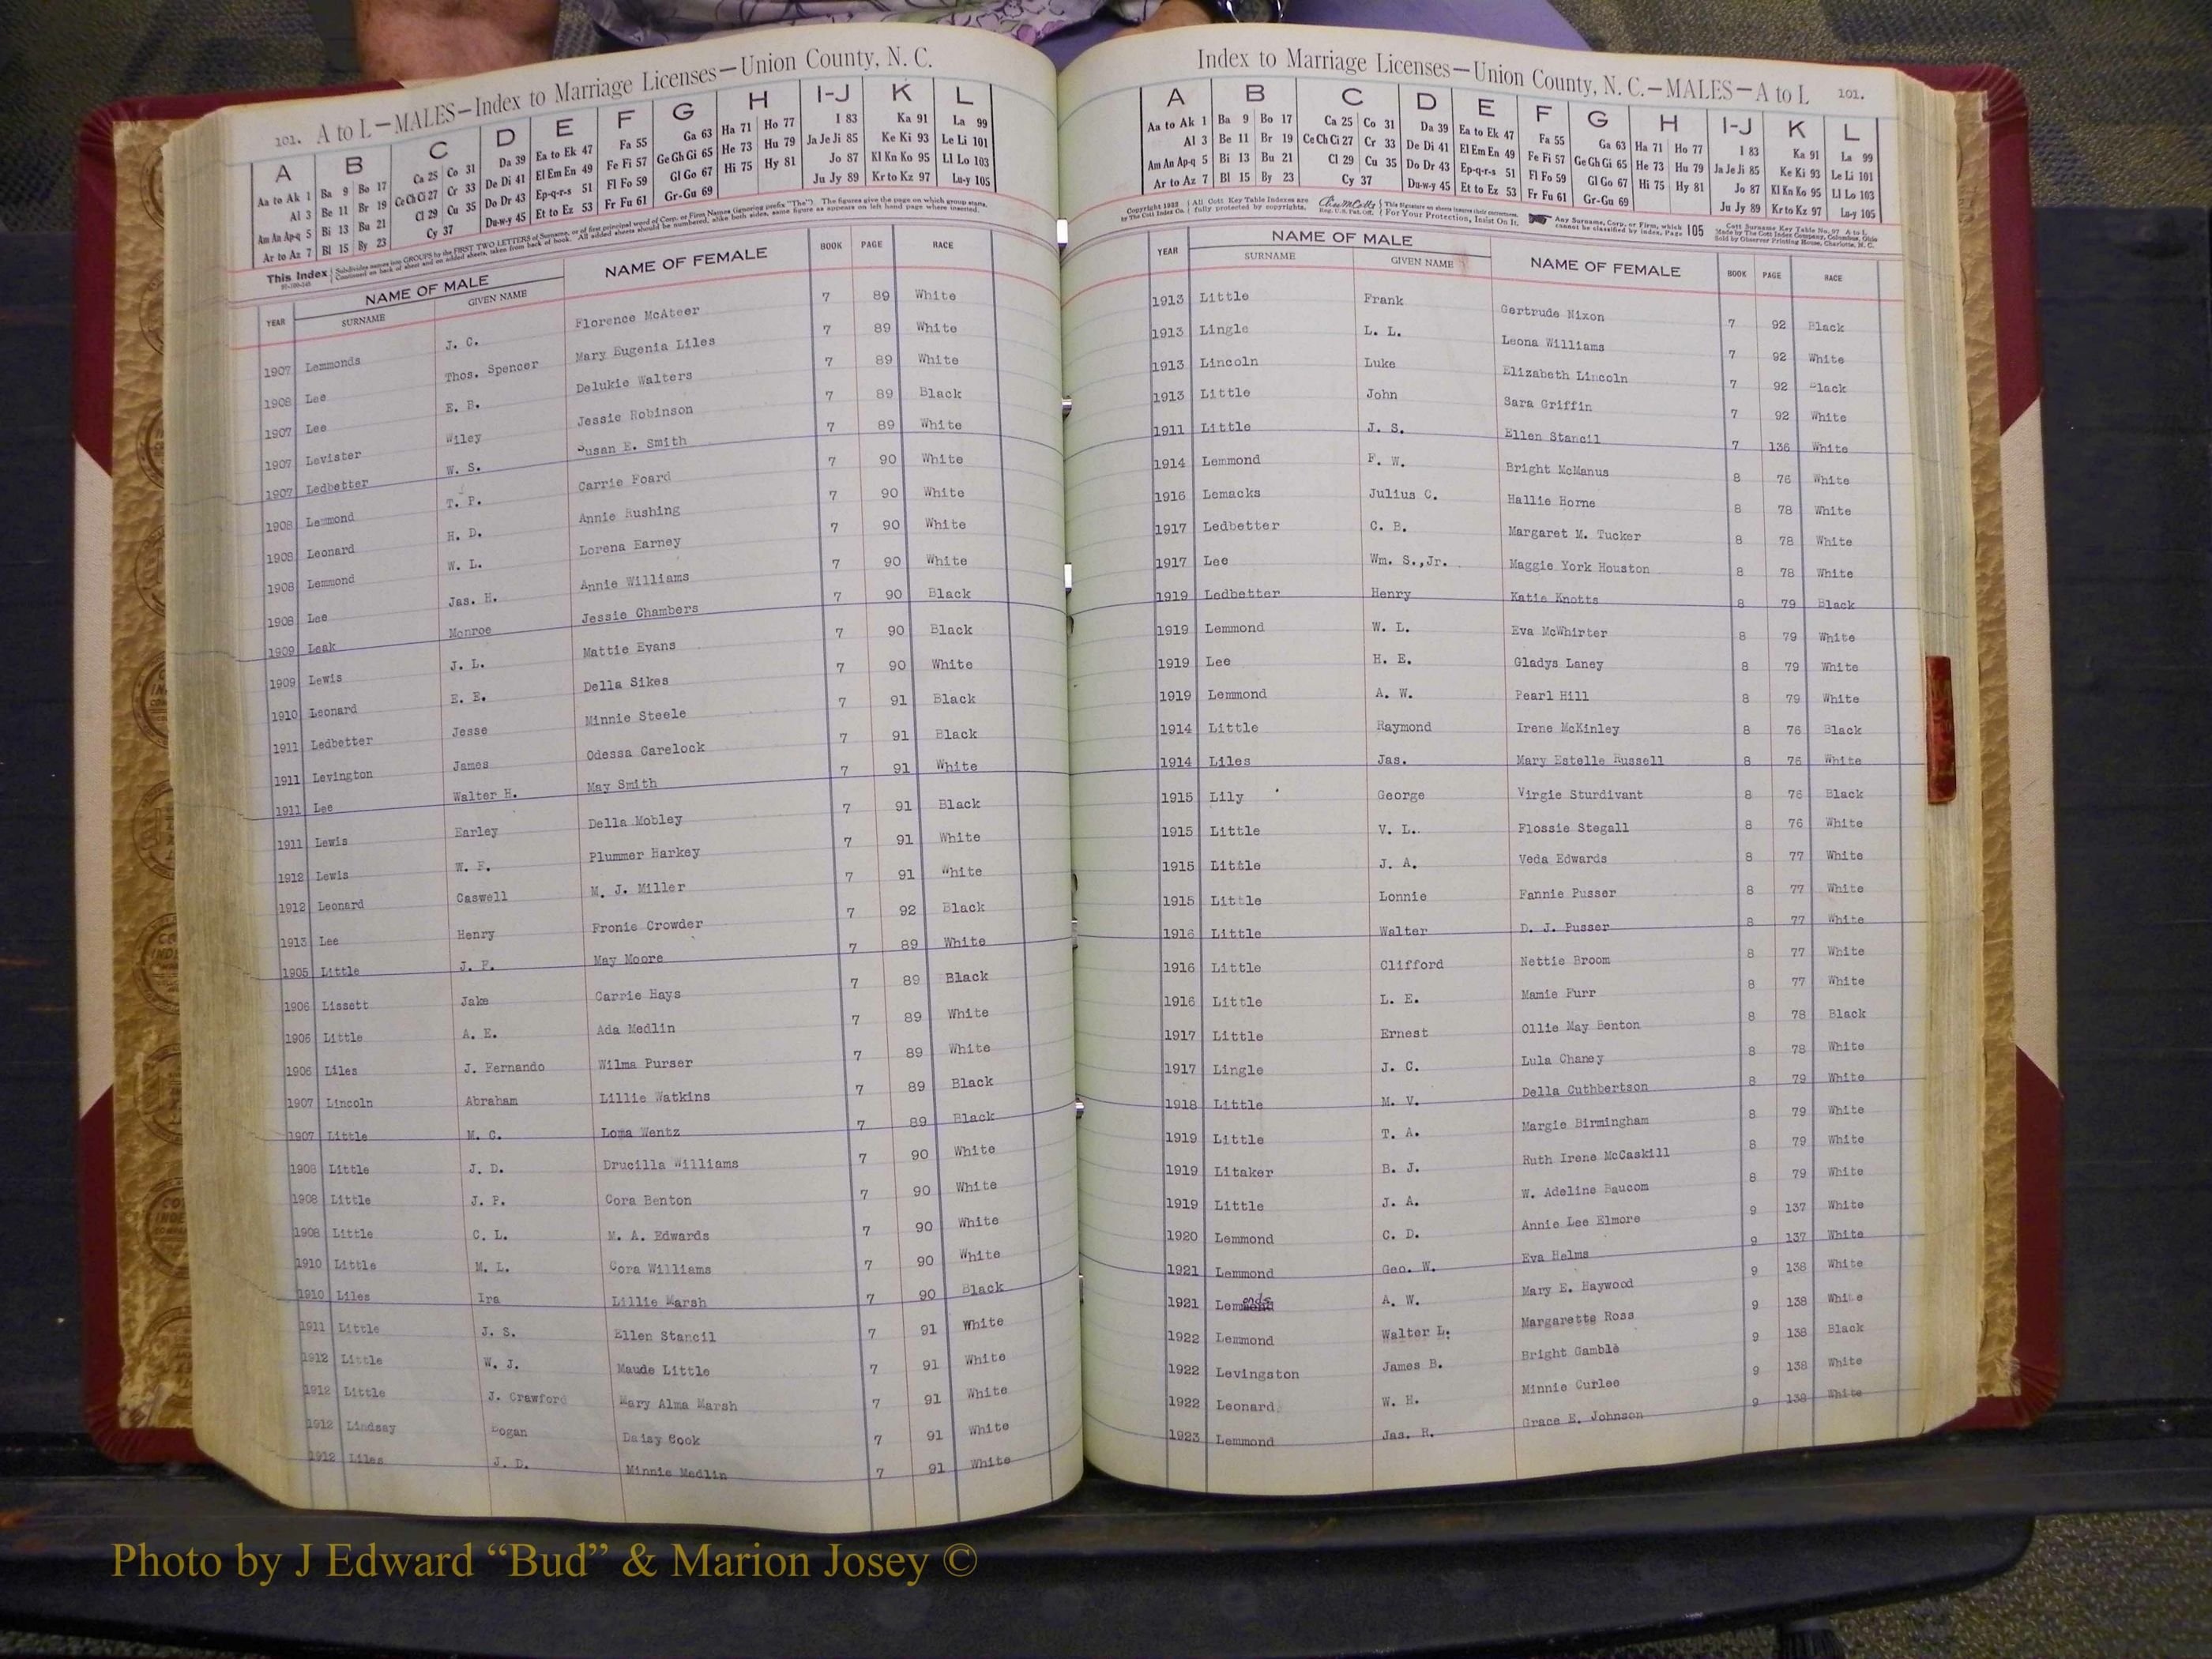 101. A to L—MALES—Index to Marriage Licenses—Union County, N. C.
A B C D E F G H I-J K L
Aa to Ak 1 Ba 9 Bo 17 Ca 25 Co 31 Da 39 Ea to Ek 47 Fa 55 Ga 63 Ha 71 Ho 77 I 83 Ka 91 La 99
Al 3 Be 11 Br 19 Ce Ch Ci 27 Cr 33 De Di 41 El Em En 49 Fe Fi 57 Ge Gh Gi 65 He 73 Hu 79 Ja Je Ji 85 Ke Ki 93 Le Li 101
Am An Ap-q 5 Bi 13 Bu 21 Cl 29 Cu 35 Do Dr 43 Ep-q-r-s 51 Fl Fo 59 Gl Go 67 Hi 75 Hy 81 Jo 87 Kl Kn Ko 95 Ll Lo 103
Ar to Az 7 Bl 15 By 23 Cy 37 Du-w-y 45 Et to Ez 53 Fr Fu 61 Gr-Gu 69 Ju Jy 89 Kr to Kz 97 Lu-y 105
This Index
YEAR NAME OF MALE NAME OF FEMALE BOOK PAGE RACE
SURNAME GIVEN NAME
1907 Lemmonds J. C. Florence McAteer 7 89 White
1908 Lee Thos. Spencer Mary Eugenia Liles 7 89 White
1907 Lee E. B. Delukie Walters 7 89 White
1907 Levister Wiley Jessie Robinson 7 89 Black
1907 Ledbetter W. S. Susan E. Smith 7 89 White
1908 Lemmond T. P. Carrie Foard 7 90 White
1908 Leonard H. D. Annie Rushing 7 90 White
1908 Lemmond W. L. Lorena Earney 7 90 White
1908 Lee Jas. H. Annie Williams 7 90 White
1909 Leak Monroe Jessie Chambers 7 90 Black
1909 Lewis J. L. Mattie Evans 7 90 Black
1910 Leonard E. E. Della Sikes 7 90 White
1911 Ledbetter Jesse Minnie Steele 7 91 Black
1911 Levington James Odessa Carelock 7 91 Black
1911 Lee Walter H. May Smith 7 91 White
1911 Lewis Earley Della Mobley 7 91 Black
1912 Lewis W. F. Plummer Harkey 7 91 White
1912 Leonard Caswell M. J. Miller 7 91 White
1913 Lee Henry Fronie Crowder 7 92 Black
1905 Little J. P. May Moore 7 89 White
1906 Lissett Jake Carrie Hays 7 89 Black
1906 Little A. E. Ada Medlin 7 89 White
1906 Liles J. Fernando Wilma Purser 7 89 White
1907 Lincoln Abraham Lillie Watkins 7 89 Black
1907 Little M. C. Loma Wentz 7 89 Black
1908 Little J. D. Drucilla Williams 7 90 White
1908 Little J. P. Cora Benton 7 90 White
1908 Little C. L. M. A. Edwards 7 90 White
1910 Little M. L. Cora Williams 7 90 White
1910 Liles Ira Lillie Marsh 7 90 Black
1911 Little J. S. Ellen Stancil 7 91 White
1912 Little W. J. Maude Little 7 91 White
1912 Little J. Crawford Mary Alma Marsh 7 91 White
1912 Lindsay Dogan Daisy Cook 7 91 White
1912 Liles J. D. Minnie Medlin 7 91 White
Index to Marriage Licenses—Union County, N. C.—MALES—A to L 101.
A B C D E F G H I-J K L
Aa to Ak 1 Ba 9 Bo 17 Ca 25 Co 31 Da 39 Ea to Ek 47 Fa 55 Ga 63 Ha 71 Ho 77 I 83 Ka 91 La 99
Al 3 Be 11 Br 19 Ce Ch Ci 27 Cr 33 De Di 41 El Em En 49 Fe Fi 57 Ge Gh Gi 65 He 73 Hu 79 Ja Je Ji 85 Ke Ki 93 Le Li 101
Am An Ap-q 5 Bi 13 Bu 21 Cl 29 Cu 35 Do Dr 43 Ep-q-r-s 51 Fl Fo 59 Gl Go 67 Hi 75 Hy 81 Jo 87 Kl Kn Ko 95 Ll Lo 103
Ar to Az 7 Bl 15 By 23 Cy 37 Du-w-y 45 Et to Ez 53 Fr Fu 61 Gr-Gu 69 Ju Jy 89 Kr to Kz 97 Lu-y 105
Copyright 1922 All Cott Key Table Indexes are
by The Cott Index Co. fully protected by copyrights. For Your Protection, Insist On It. Any Surname, Corp. or Firm, which cannot be classified by index, Page 105
YEAR NAME OF MALE NAME OF FEMALE BOOK PAGE RACE
SURNAME GIVEN NAME
1913 Little Frank Gertrude Nixon 7 92 Black
1913 Lingle L. L. Leona Williams 7 92 White
1913 Lincoln Luke Elizabeth Lincoln 7 92 Black
1913 Little John Sara Griffin 7 92 White
1911 Little J. S. Ellen Stancil 7 136 White
1914 Lemmond F. W. Bright McManus 8 76 White
1916 Lemacks Julius C. Hallie Horne 8 78 White
1917 Ledbetter C. B. Margaret M. Tucker 8 78 White
1917 Lee Wm. S.,Jr. Maggie York Houston 8 78 White
1919 Ledbetter Henry Katie Knotts 8 79 Black
1919 Lemmond W. L. Eva McWhirter 8 79 White
1919 Lee H. E. Gladys Laney 8 79 White
1919 Lemmond A. W. Pearl Hill 8 79 White
1914 Little Raymond Irene McKinley 8 76 Black
1914 Liles Jas. Mary Estelle Russell 8 76 White
1915 Lily George Virgie Sturdivant 8 76 Black
1915 Little V. L. Flossie Stegall 8 76 White
1915 Little J. A. Veda Edwards 8 77 White
1915 Little Lonnie Fannie Pusser 8 77 White
1916 Little Walter D. J. Pusser 8 77 White
1916 Little Clifford Nettie Broom 8 77 White
1916 Little L. E. Mamie Furr 8 77 White
1917 Little Ernest Ollie May Benton 8 78 Black
1917 Lingle J. C. Lula Chaney 8 78 White
1918 Little M. V. Della Cuthbertson 8 79 White
1919 Little T. A. Margie Birmingham 8 79 White
1919 Litaker B. J. Ruth Irene McCaskill 8 79 White
1919 Little J. A. W. Adeline Baucom 8 79 White
1920 Lemmond C. D. Annie Lee Elmore 9 137 White
1921 Lemmond Geo. W. Eva Helms 9 137 White
1921 Lemonds A. W. Mary E. Haywood 9 138 White
1922 Lemmond Walter L. Margarette Ross 9 138 White
1922 Levingston James B. Bright Gamble 9 138 Black
1922 Leonard W. H. Minnie Curlee 9 138 White
1923 Lemmond Jas. R. Grace E. Johnson 9 138 White
Photo by J Edward “Bud” & Marion Josey ©